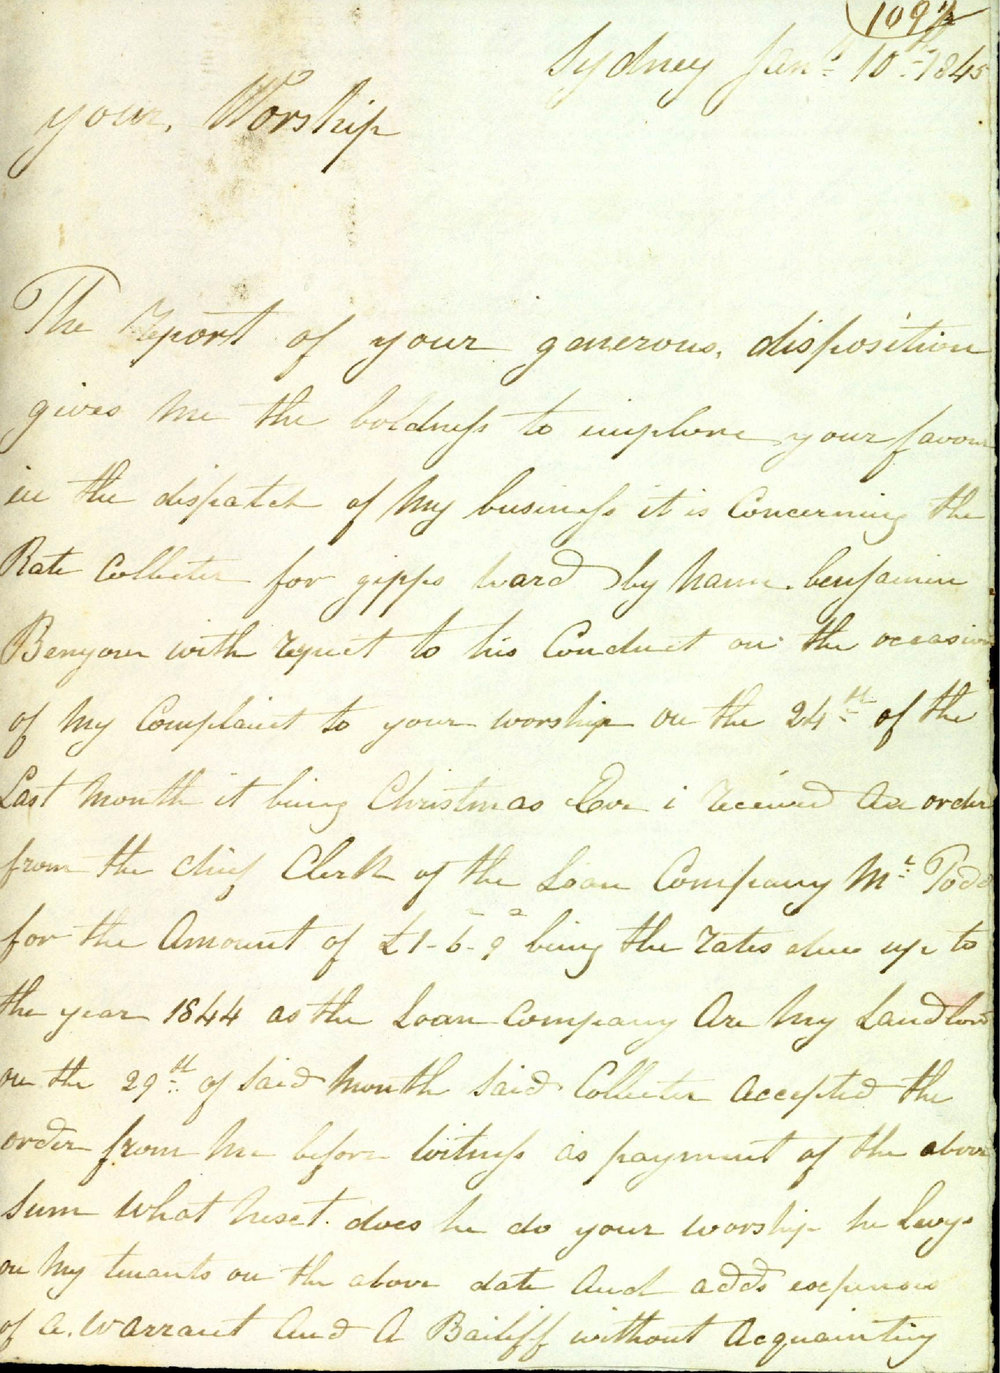 109½
Sydney Jany 10th 1845
your, Worship
The report of your generous, disposition
gives me the boldness to implore your favour
in the dispatch of My business it is Concerning the
Rate Collecter for gipps ward by Name. benjamin
Benyon with respect to his Conduct on the occasion
of My Complaint to your worship on the 24th of the
Last Month it being Christmas Eve i received An order
from the chief Clerk of the Loan Company Mr Todd
for the Amount of £1-6-9 being the rates due up to
the year 1844 as the Loan Company Are My Landlord
on the 29th of Said Month Said Collecter accepted the
order from Me before witness as payment of the above
Sum What Next. does he do your worship he Levys
on My tenants on the above date And adds expenses
of a. Warrant And A Bailiff without Acquainting